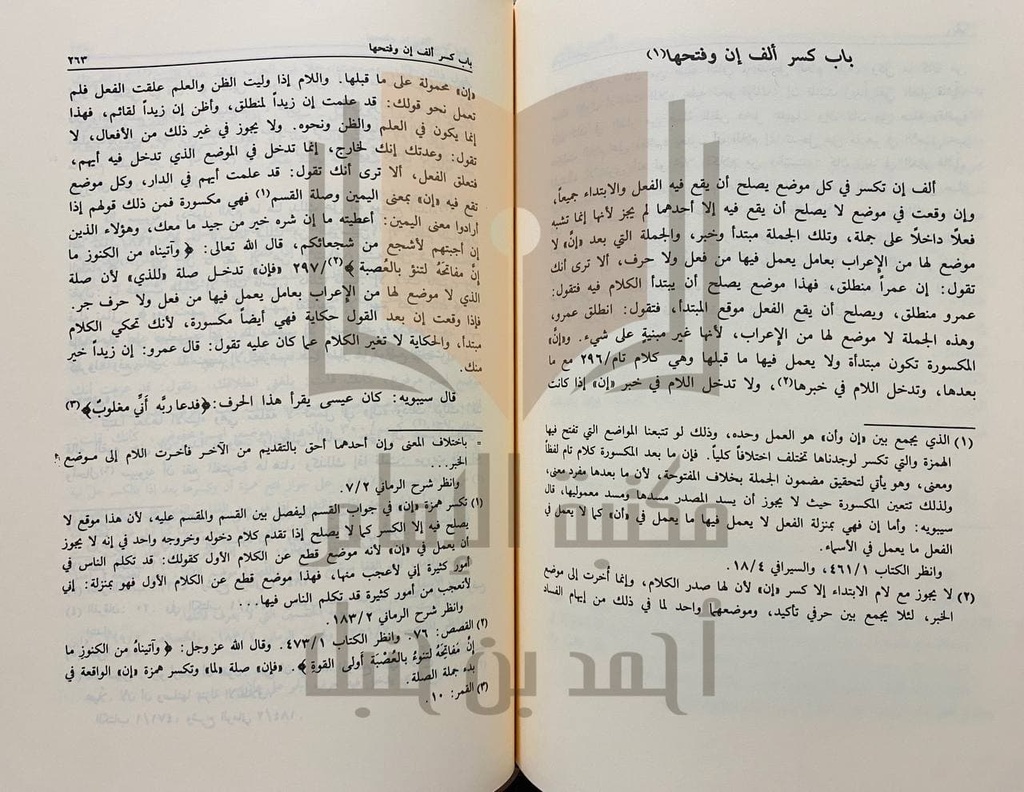 باب كسر ألف إن وفتحها(١)
ألف إن تكسر في كل موضع يصلح أن يقع فيه الفعل والابتداء جميعاً،
وإن وقعت في موضع لا يصلح أن يقع فيه إلا أحدهما لم يجز لأنها إنما تشبه
فعلاً داخلاً على جملة، وتلك الجملة مبتدأ وخبر، والجملة التي بعد «إنّ» لا
موضع لها من الإعراب بعامل يعمل فيها من فعل ولا حرف، ألا ترى أنك
تقول: إن عمراً منطلق، فهذا موضع يصلح أن يبتدأ الكلام فيه فتقول:
عمرو منطلق، ويصلح أن يقع الفعل موقع المبتدأ، فتقول: انطلق عمرو،
وهذه الجملة لا موضع لها من الإعراب، لأنها غير مبنية على شيء. و«إنّ»
المكسورة تكون مبتدأة ولا يعمل فيها ما قبلها وهي كلام تام/٢٩٦ مع ما
بعدها، وتدخل اللام في خبرها(٢)، ولا تدخل اللام في خبر «إن» إذا كانت
(١) الذي يجمع بين «إن وأن» هو العمل وحده، وذلك لو تتبعنا المواضع التي تفتح فيها
الهمزة والتي تكسر لوجدناها تختلف اختلافاً كلياً. فإن ما بعد المكسورة كلام تام لفظاً
ومعنى، وهو يأتي لتحقيق مضمون الجملة بخلاف المفتوحة، لأن ما بعدها مفرد معنى،
ولذلك تتعين المكسورة حيث لا يجوز أن يسد المصدر مسدها ومسد معموليها، قال
سيبويه: وأما إن فهي بمنزلة الفعل لا يعمل فيها ما يعمل في «أن» كما لا يعمل في
الفعل ما يعمل في الأسماء.
وانظر الكتاب ٤٦١/١، والسيرافي ١٨/٤.
(٢) لا يجوز مع لام الابتداء إلا كسر «إن» لأن لها صدر الكلام، وإنما أخرت إلى موضع
الخبر، لئلا يجمع بين حرفي تأكيد، وموضعهما واحد لما في ذلك من إيهام الفساد
باب كسر ألف إن وفتحها ٢٦٣
«إن» محمولة على ما قبلها. واللام إذا وليت الظن والعلم علقت الفعل فلم
تعمل نحو قولك: قد علمت إن زيداً لمنطلق، وأظن إن زيداً لقائم، فهذا
إنما يكون في العلم والظن ونحوه. ولا يجوز في غير ذلك من الأفعال، لا
تقول: وعدتك إنك لخارج، إنما تدخل في الموضع الذي تدخل فيه أيهم،
فتعلق الفعل، ألا ترى أنك تقول: قد علمت أيهم في الدار، وكل موضع
تقع فيه «إن» بمعنى اليمين وصلة القسم(١) فهي مكسورة فمن ذلك قولهم إذا
أرادوا معنى اليمين: أعطيته ما إن شره خير من جيد ما معك، وهؤلاء الذين
إن أجبتهم لأشجع من شجعائكم، قال الله تعالى: ﴿وآتيناه من الكنوز ما
إنَّ مفاتحَهُ لتنؤ بالعُصبة﴾(٢)/٢٩٧ «فإن» تدخل صلة «للذي» لأن صلة
الذي لا موضع لها من الإعراب بعامل يعمل فيها من فعل ولا حرف جر.
فإذا وقعت إن بعد القول حكاية فهي أيضاً مكسورة، لأنك تحكي الكلام
مبتدأ، والحكاية لا تغير الكلام عما كان عليه تقول: قال عمرو: إن زيداً خير
منك.
قال سيبويه: كان عيسى يقرأ هذا الحرف:﴿فدعا ربَّه أنّي مغلوبٌ﴾(٣)
= باختلاف المعنى وإن أحدهما أحق بالتقديم من الآخر فأخرت اللام إلى موضع
الخبر...
وانظر شرح الرماني ٧/٢.
(١) تكسر همزة «إن» في جواب القسم ليفصل بين القسم والمقسم عليه، لأن هذا موقع لا
يصلح فيه إلا الكسر كما لا يصلح إذا تقدم كلام دخوله وخروجه واحد في إنه لا يجوز
أن يعمل في «إن» لأنه موضع قطع عن الكلام الأول كقولك: قد تكلم الناس في
أمور كثيرة إني لأعجب منها، فهذا موضع قطع عن الكلام الأول فهو بمنزلة: إني
لأتعجب من أمور كثيرة قد تكلم الناس فيها...
وانظر شرح الرماني ١٨٣/٢.
(٢) القصص: ٧٦. وانظر الكتاب ٤٧٣/١. وقال الله عز وجل: ﴿وآتيناهُ من الكنوز ما
إنَّ مَفَاتحَهُ لَتنوءُ بالعُصْبَة أولى القوة﴾. «فإن» صلة «لما» وتكسر همزة «إن» الواقعة في
بدء جملة الصلة.
(٣) القمر: ١٠.
مكتبة الإمام
أحمد بن حنبل